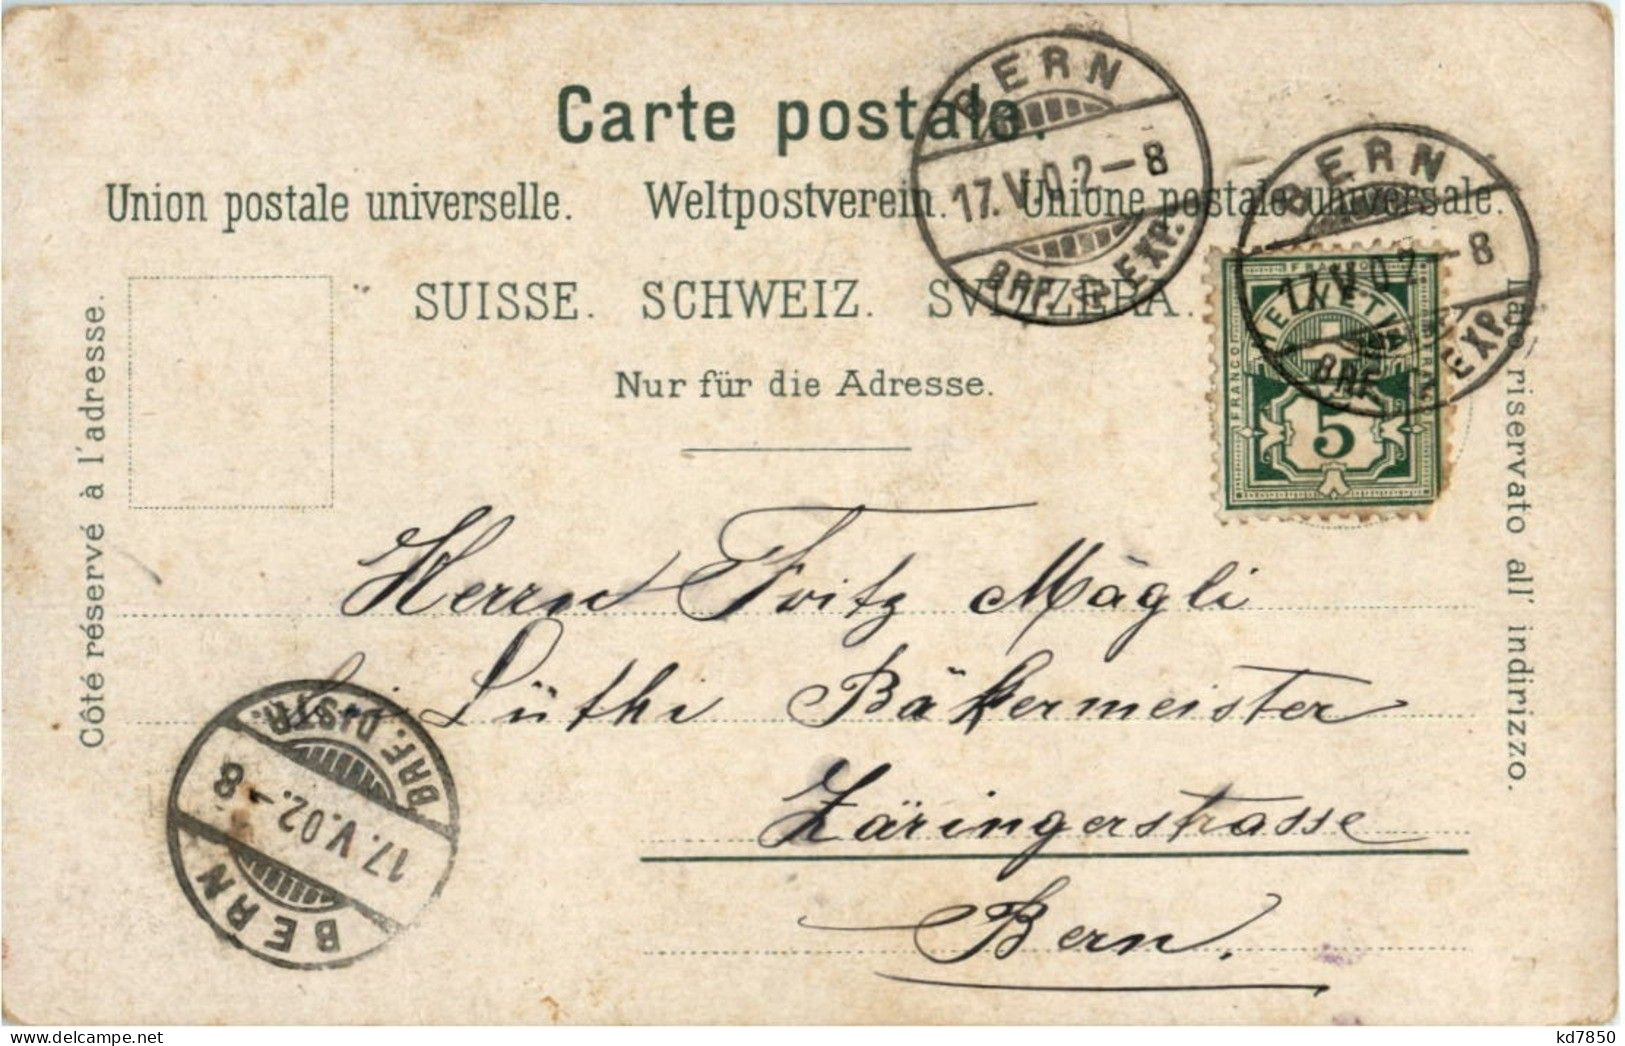 Carte postale.
Union postale universelle. Weltpostverein. Unione postale universale.
SUISSE. SCHWEIZ. SVIZZERA.
Nur für die Adresse.
Côté réservé à l'adresse.
Lato riservato all' indirizzo.
BERN
17.V.02-8
BRF. EXP.
BERN
17.V.02-8
BRF. EXP.
FRANCO
HELVETIA
FRANCO
5
Herrn Fritz Mägli
bei Lüthi Bäkermeister
Zäringerstrasse
Bern.
BRF. DISTR.
17.V.02.-8
BERN
kd7850